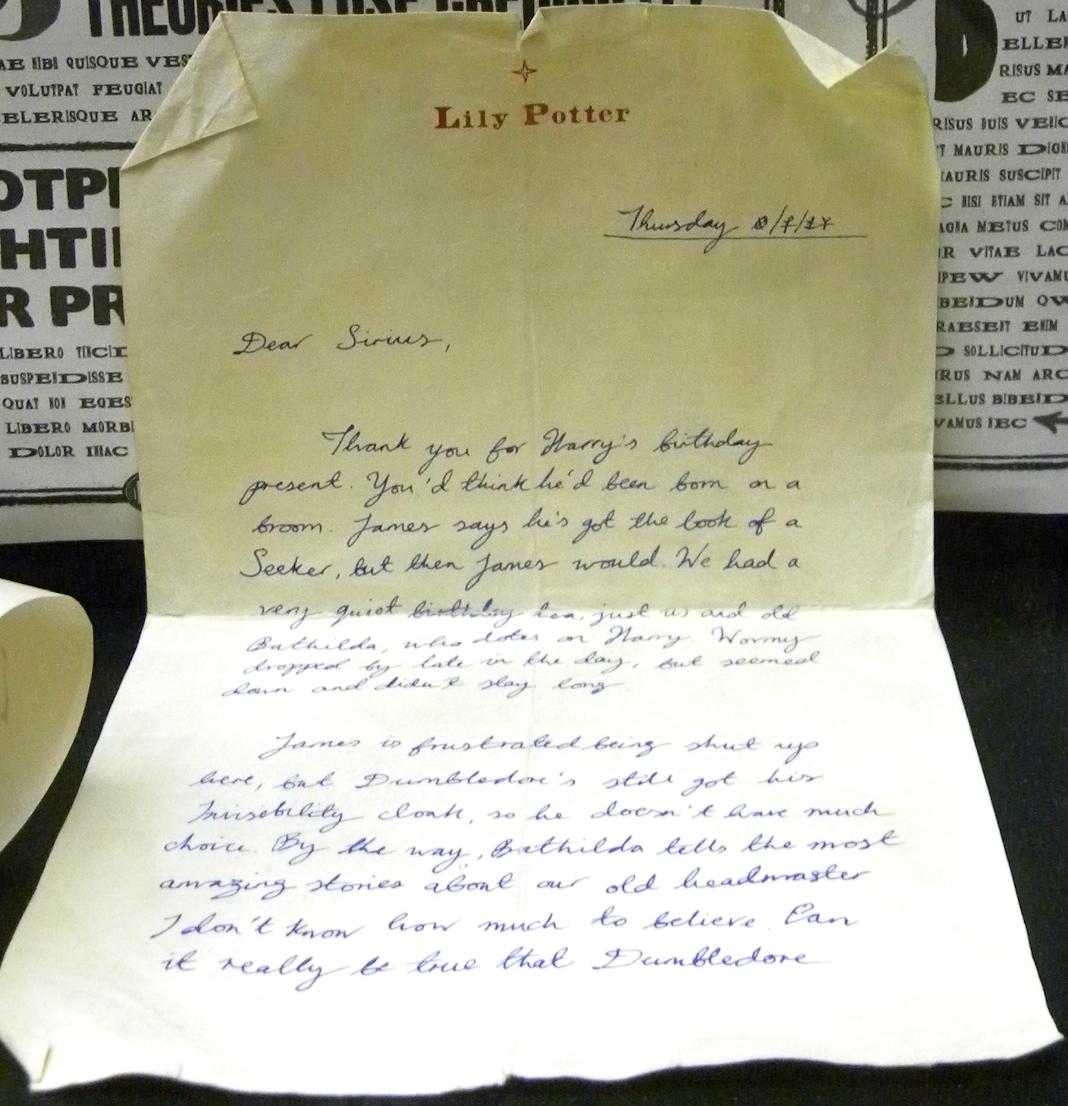 THEORIES LOSE CREDIBILITY
AE NIBI QUISQUE VES
VOLUTPAT FEUGIAT
ELERISQUE AR
OTPI
HTII
R PR
LIBERO TINCID
SUSPENDISSE
QUAT NON EGES
LIBERO MORBI
DOLOR IN AC
Lily Potter
Thursday
Dear Sirius,
Thank you for Harry's birthday
present. You'd think he'd been born on a
broom. James says he's got the look of a
Seeker, but then James would. We had a
very quiet birthday tea, just us and old
Bathilda, who dotes on Harry. Wormy
dropped by late in the day, but seemed
down and didn't stay long.
James is frustrated being shut up
here, but Dumbledore's still got his
Invisibility cloak, so he doesn't have much
choice. By the way, Bathilda tells the most
amazing stories about our old headmaster
I don't know how much to believe. Can
it really be true that Dumbledore
UT LA
ELLE
RISUS MA
EC SE
RISUS DUIS VE
T MAURIS DIG
AURIS SUSCIPIT
NISI ETIAM SIT A
AGNA METUS CON
R VITAE LAC
VIVAMU
BENDUM
RAESENT ENIM
SOLLICITUD
RUS NAM ARC
ELLUS BIBEND
VAMUS NEC